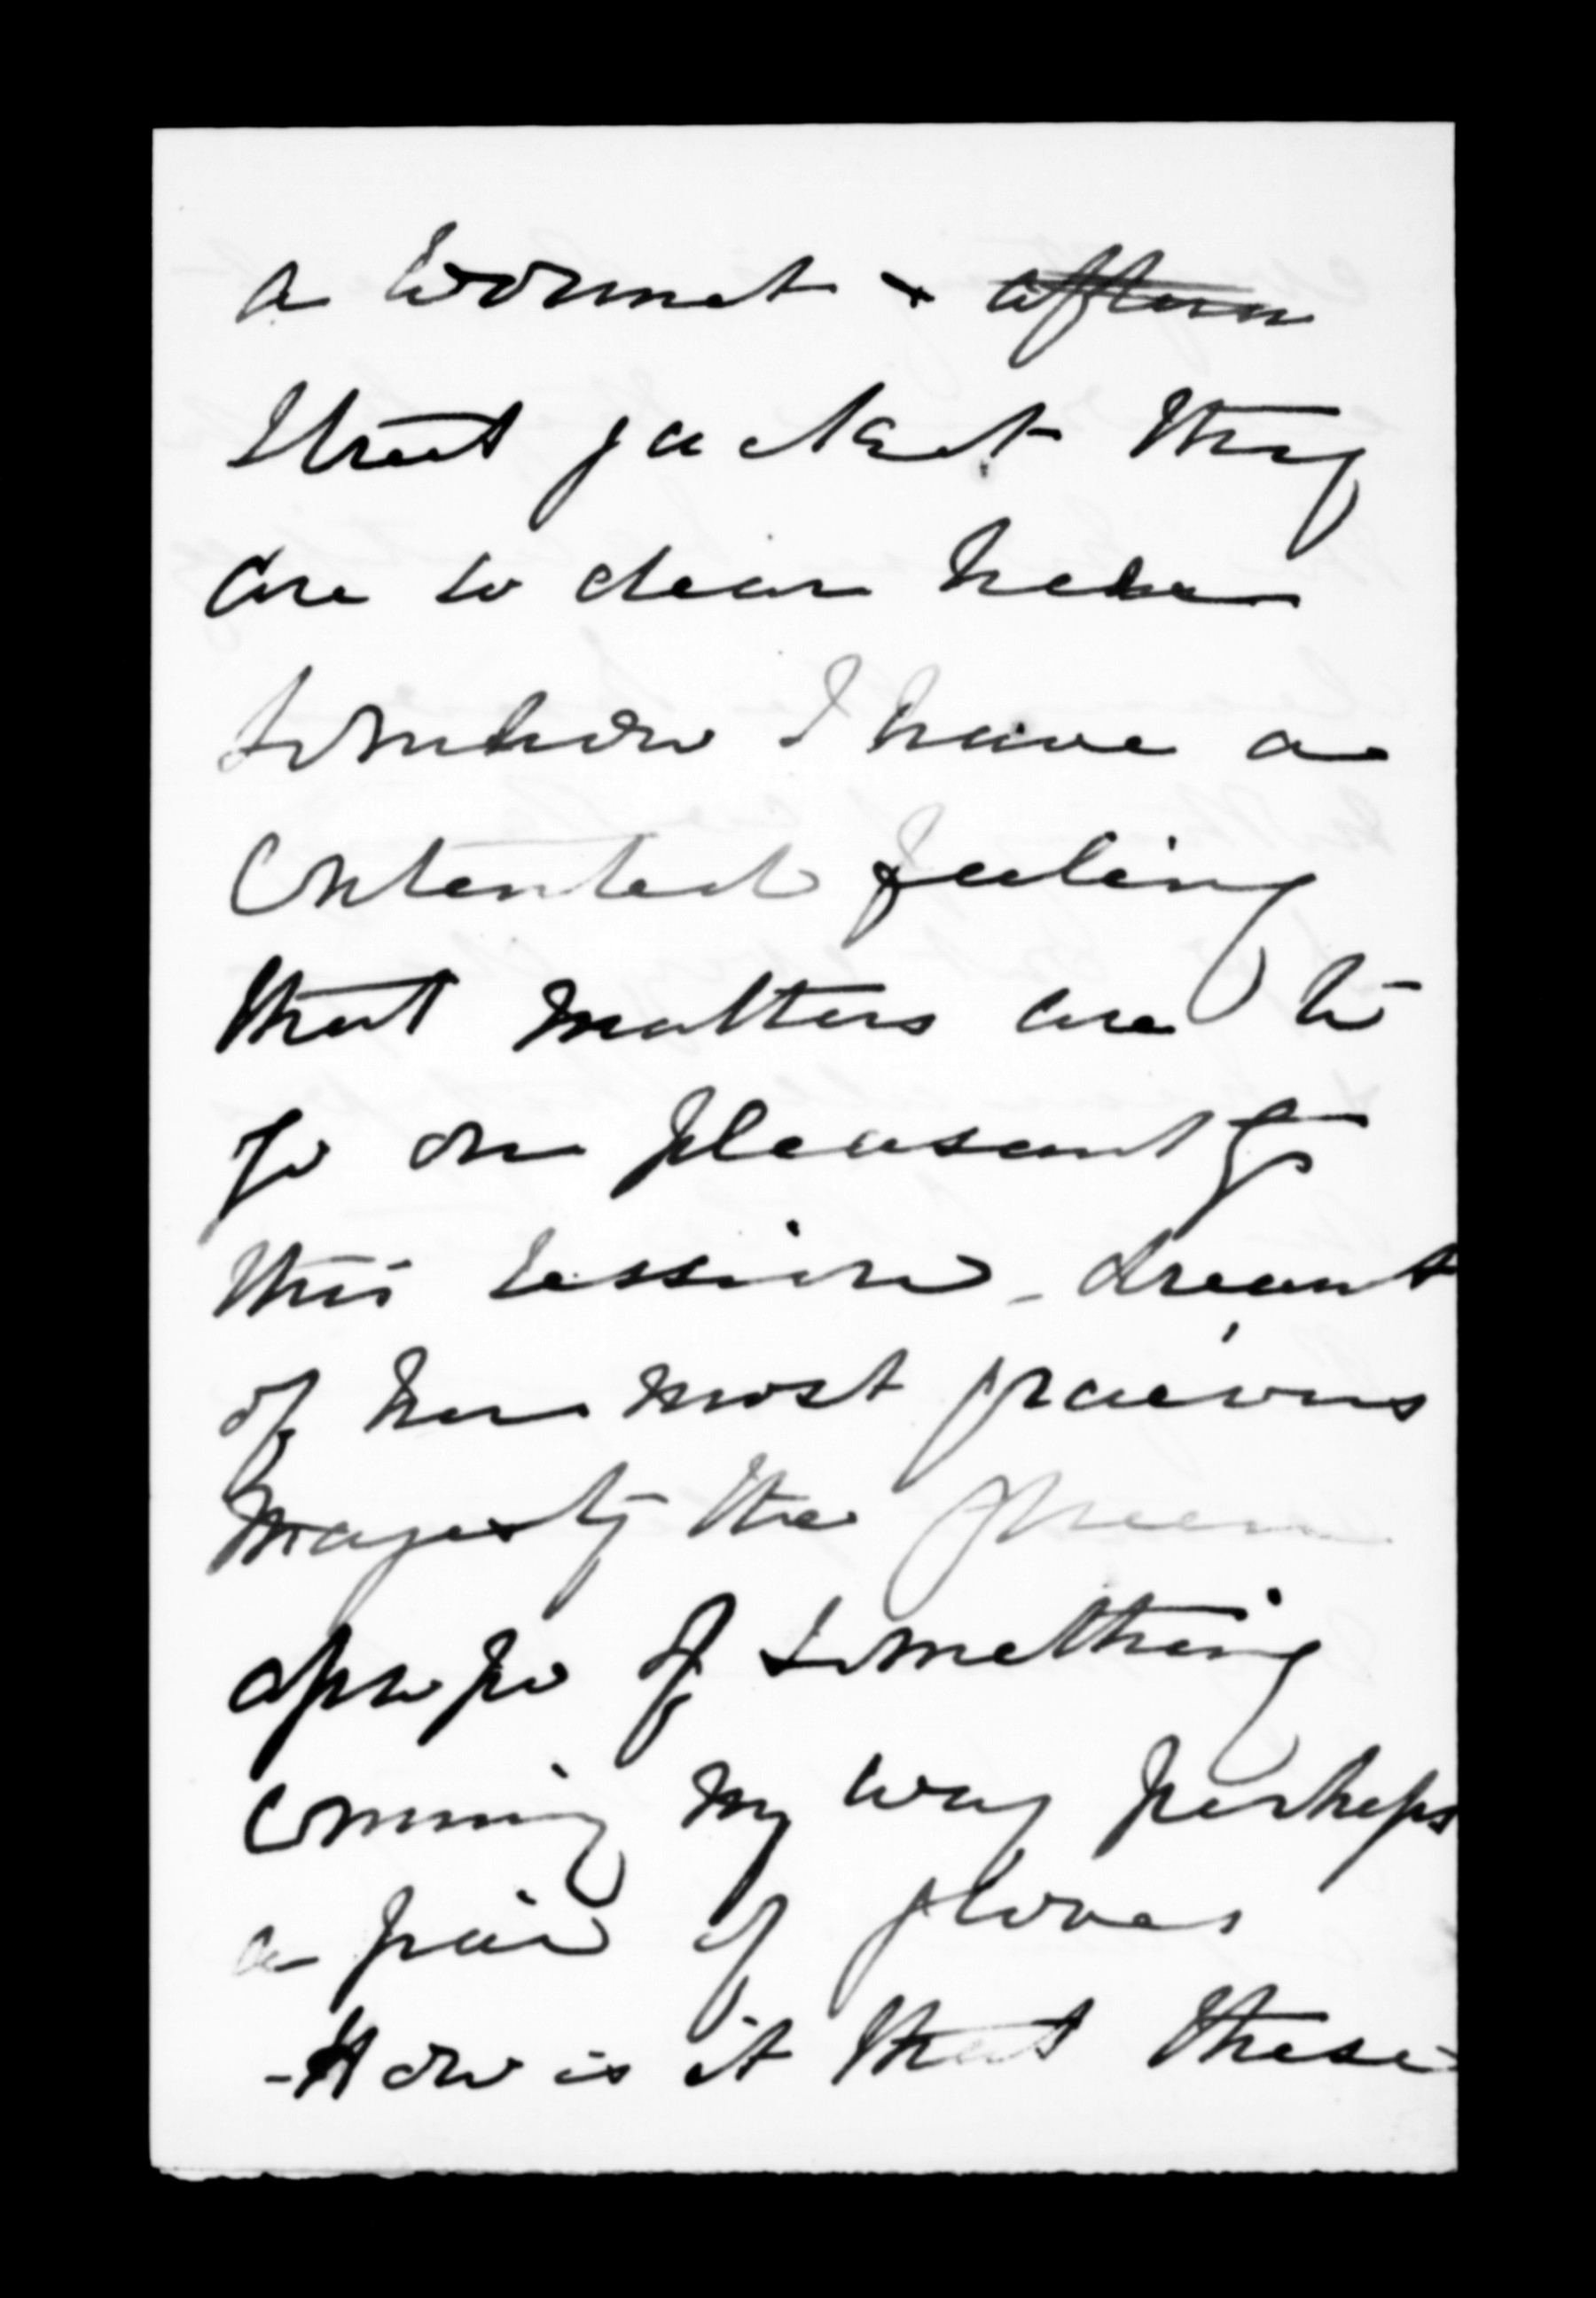 a bonnet & ~~aftern~~
street jacket they
are so dear here
Somehow I have a
Contented feeling
that matters are to
go on pleasantly
this session - dreamt
of her most gracious
Majesty the Queen
apropo of something
coming my way perhaps
a pair of gloves
- How is it that these